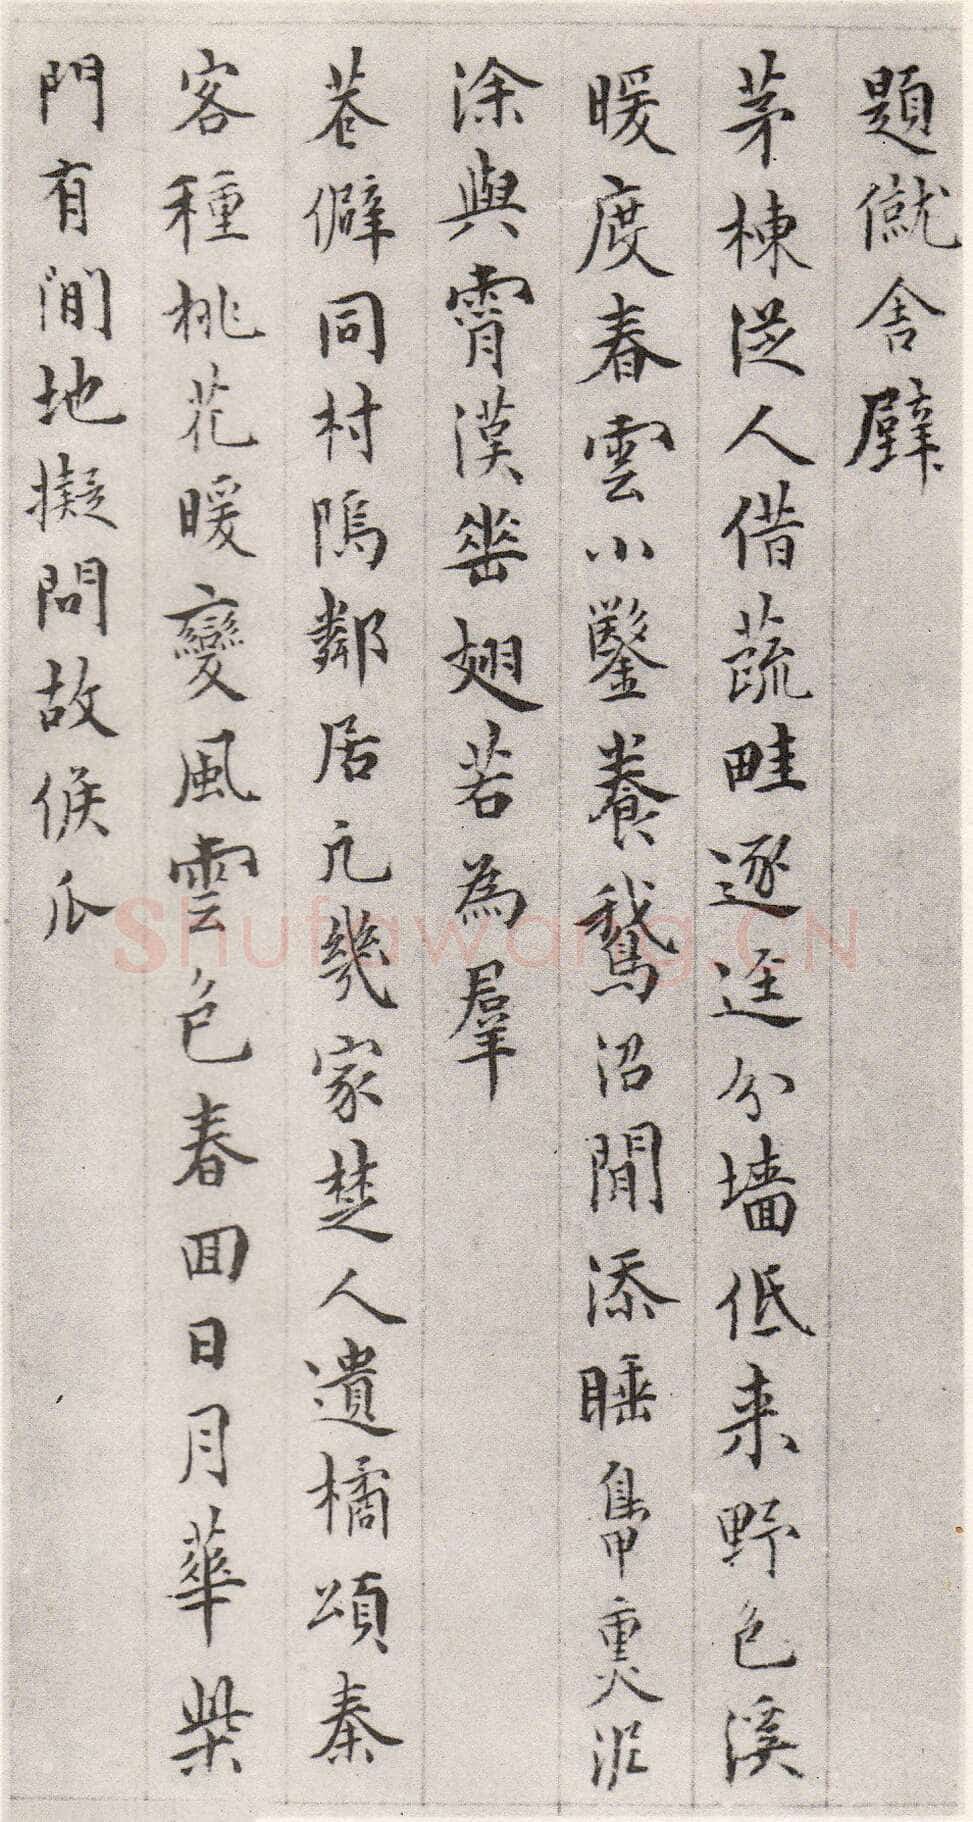 題僦舍壁
茅棟從人借蔬畦逐逕分墻低来野色溪
暖度春雲小鑿養鵞沼閒添睡鴨熏泥
涂與霄漢垂翅若為羣
巷僻同村隖鄰居凢幾家楚人遺橘頌秦
客種桃花暖變風雲色春囬日月華柴
門有閒地擬問故侯瓜
Shufawang.CN